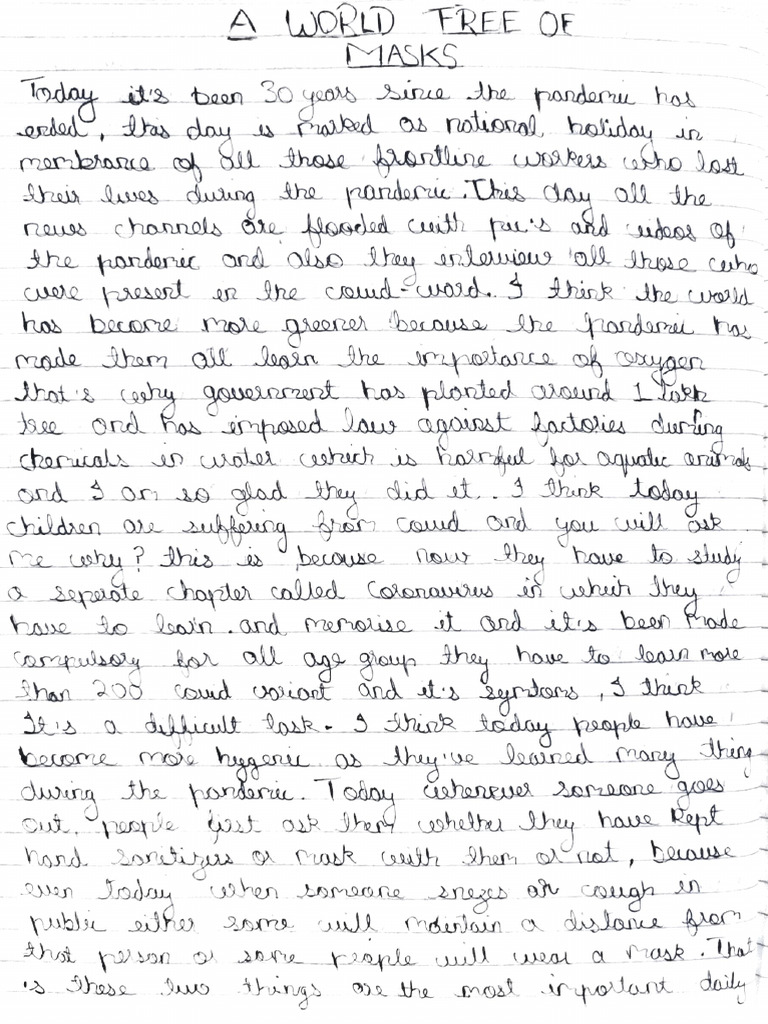 A WORLD FREE OF
MASKS
Today it's been 30 years since the pandemic has
ended, this day is marked as national holiday in
membrance of all those frontline workers who lost
their lives during the pandemic. This day all the
news channels are flooded with pic's and videos of
the pandemic and also they interview all those who
were present in the covid-ward. I think the world
has become more greener because the pandemic has
made them all learn the importance of oxygen
that's why government has planted around 1 lakh
tree and has imposed law against factories dumping
chemicals in water which is harmful for aquatic animals
and I am so glad they did it. I think today
children are suffering from covid and you will ask
me why? this is because now they have to study
a seperate chapter called Coronavirus in which they
have to learn and memorise it and it's been made
compulsory for all age group they have to learn more
than 200 covid variant and it's symtoms, I think
It's a difficult task. I think today people have
become more hygenic as they've learned many thing
during the pandemic. Today whenever someone goes
out, people first ask them whether they have kept
hand sanitizers or mask with them or not, because
even today when someone snezes or cough in
public either some will maintain a distance from
that person or some people will wear a mask. That
's these two things are the most important daily